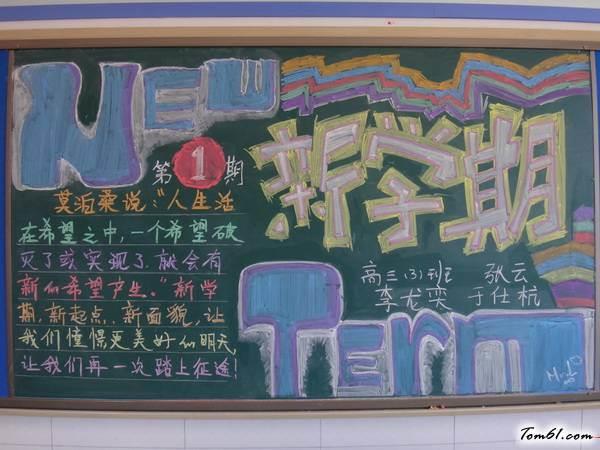 NEW
第1期
新学期
莫泊桑说:"人生活
在希望之中,一个希望破
灭了或实现了,就会有
新的希望产生。"新学
期,新起点,新面貌,让
我们憧憬更美好的明天,
让我们再一次踏上征途!
高三(3)班 张云
李龙奕 于仕杭
Term
Tom61.com